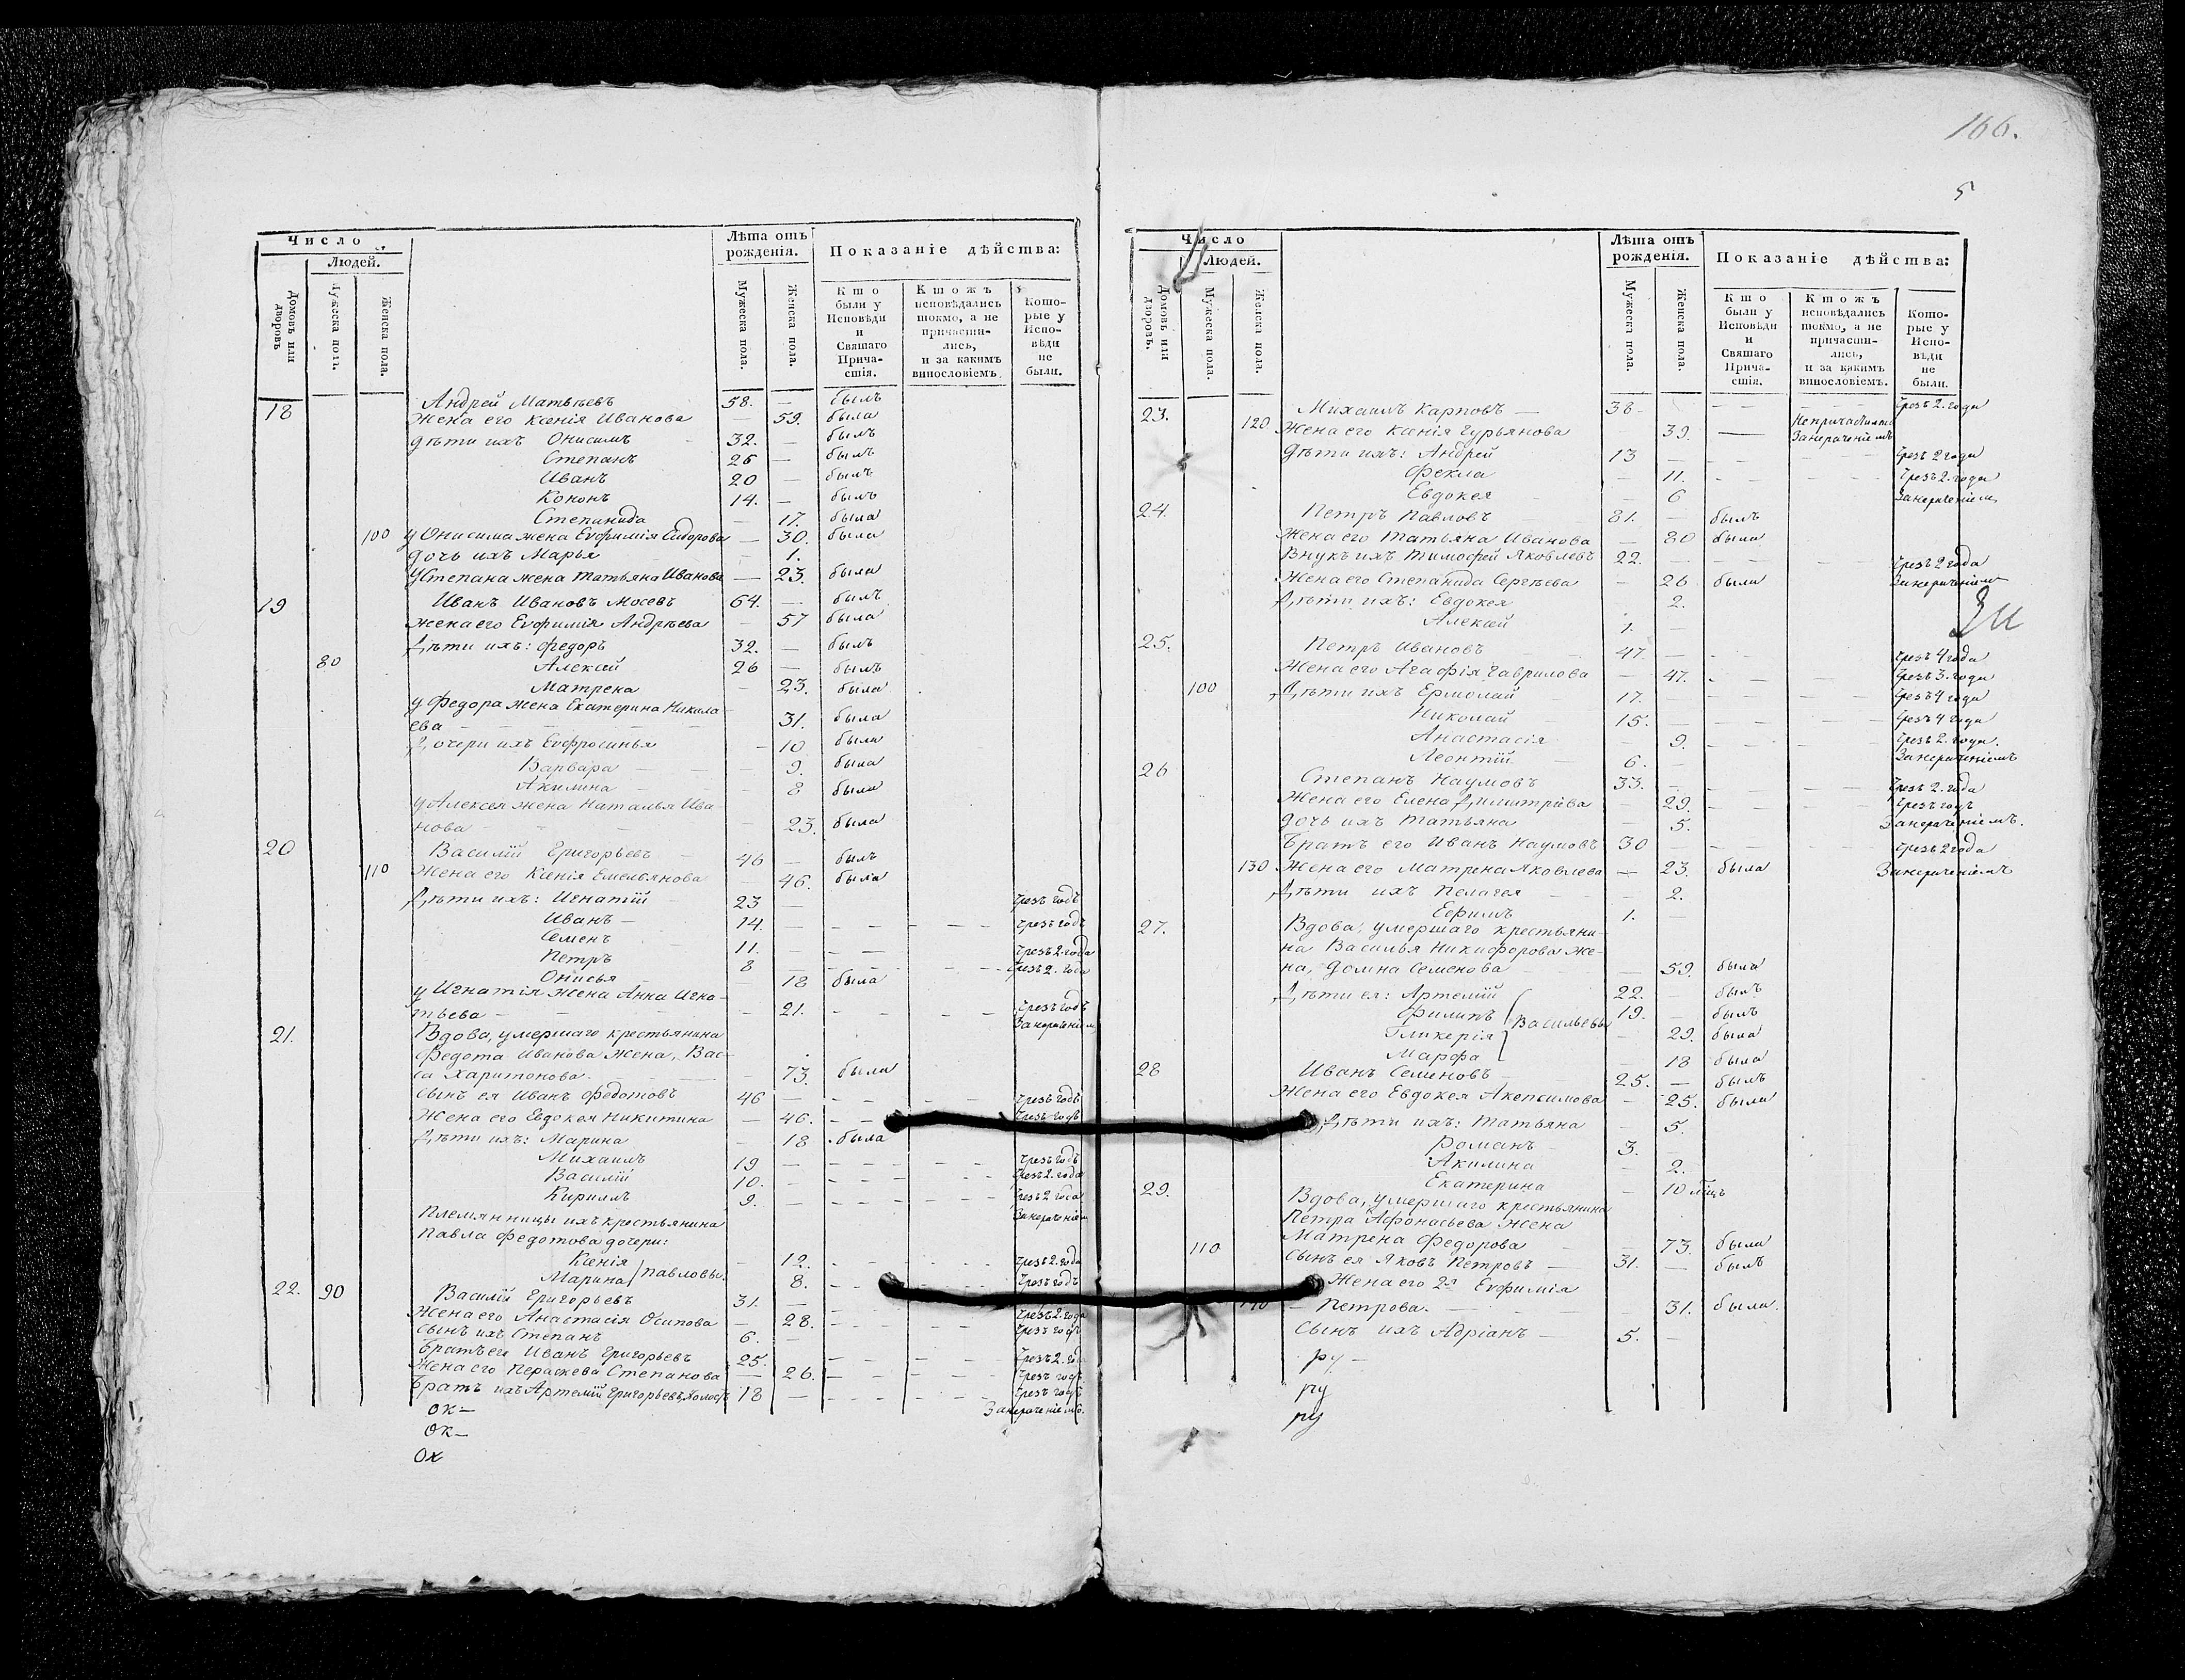 166.
5
Число
Людей.
Домовъ или дворовъ
Мужеска пола.
Женска пола.
Лѣта отъ рождения.
Мужеска пола.
Женска пола.
Показаніе дѣйства:
Кто были у Исповѣди и Святаго Причастія.
Ктожъ исповѣдались токмо, а не причастились, и за какимъ винословіемъ.
Которые у Исповѣди не были.
18 Андрей Матвѣевъ 58. — былъ
Жена его Ксенія Иванова 59. была
дѣти ихъ Онисимъ 32. — былъ
Степанъ 26 — былъ
Иванъ 20 — былъ
Кононъ 14. — былъ
Степанида — 17. была
100 у Онисима жена Евфимія Сидорова — 30. была
дочь ихъ Марья — 1.
У Степана жена Татьяна Иванова — 23. была
19 Иванъ Ивановъ Мосевъ 64. — былъ
жена его Евфимія Андрѣева — 57 была
Дѣти ихъ: Федоръ 32. — былъ
80 Алексѣй 26 — былъ
Матрена — 23. была
у Федора жена Екатерина Никола-
ева — 31. была
Дочери ихъ Евфросинья — 10 была
Варвара — 9. была
Акилина — 8 была
у Алексея жена Наталья Ива-
нова — 23. была
20 Василій Григорьевъ 46 — былъ
110 Жена его Ксенія Емельянова 46. была
Дѣти ихъ: Игнатій 23 — чрезъ годъ
Иванъ — 14. — чрезъ годъ
Семенъ 11. — чрезъ 2. года
Петръ 8 — чрезъ 2. года
Онисья — 18 была
у Игнатія жена Анна Игна-
тьева — 21. — чрезъ годъ
Занераченіем
21. Вдова, умершаго крестьянина
Федота Иванова жена, Вас-
са Харитонова. — 73. была
сынъ ея Иванъ Федотовъ 46 — чрезъ годъ
Жена его Евдокея Никитина — 46. — чрезъ годъ
Дѣти ихъ: Марина — 18 была
Михаилъ 19 — чрезъ годъ
Василій 10. — чрезъ 2. года
Кирилъ 9. — чрезъ 2 года
Занераченіем
Племянницы ихъ крестьянина
Павла Федотова дочери:
Ксенія — 12. — чрезъ 2. года
Марина Павловы. 8. — чрезъ годъ
22. 90 Василій Григорьевъ 31. —
Жена его Анастасія Осипова — 28. — чрезъ 2. года
сынъ ихъ Степанъ 6. — чрезъ годъ
Братъ его Иванъ Григорьевъ 25. — чрезъ 2. год
Жена его Пераскева Степанова — 26. — чрезъ годъ
Братъ ихъ Артемій Григорьевъ, Холостъ 18 — чрезъ годъ
Занераченіемъ.
ок —
ок —
ок
Число
Людей.
Домовъ или дворовъ.
Мужеска пола.
Женска пола.
Лѣта отъ рожденія.
Мужеска пола.
Женска пола.
Показаніе дѣйства:
Кто были у Исповѣди и Святаго Причастія.
Ктожъ исповѣдались токмо, а не причастились, и за какимъ винословіемъ.
Которые у Исповѣди не были.
23. Михаилъ Карповъ — 38 — чрезъ 2. года
120 Жена его Ксенія Гурьянова 39. — Непричастилась Занераченіемъ
Дѣти ихъ: Андрей 13 — чрезъ 2 года
Фекла — 11. — чрезъ 2. года
Евдокея — 6 Занераченіем
24. Петръ Павловъ 81. — былъ
Жена его Татьяна Иванова — 80 была
Внукъ ихъ Тимофей Яковлевъ 22. — чрезъ 2 года
Жена его Степанида Сергѣева — 26 была Занераченіем
Дѣти ихъ: Евдокея 2.
Алексѣй 1. —
25. Петръ Ивановъ 47. — чрезъ 4 года
Жена его Агафія Гаврилова — 47. — чрезъ 3. года
100 Дѣти ихъ Ермолай 17. — чрезъ 4 года
Николай 15. — чрезъ 4 года
Анастасія — 9. — чрезъ 2. года.
Леонтій 6. — Занераченіемъ
26 Степанъ Наумовъ 33. — чрезъ 2. года
Жена его Елена Димитріева — 29. — чрезъ годъ
дочь ихъ Татьяна — 5. Занераченіемъ.
Братъ его Иванъ Наумовъ 30 — чрезъ 2 года
130 Жена его Матрена Яковлева — 23. была Занераченіемъ
Дѣти ихъ Пелагея — 2.
Ефимъ 1. —
27. Вдова, умершаго крестьяни-
на Василья Никифорова же-
на, Домна Семенова — 59. была
Дѣти ея: Артемій 22. — былъ
Филипъ Васильевы 19. — былъ
Гликерія — 29. была
Марфа — 18 была
28 Иванъ Семеновъ — 25. — былъ
Жена его Евдокея Акепсимова — 25. была
Дѣти ихъ: Татьяна — 5.
Романъ — 3. —
Акилина — 2.
Екатерина — 10 мѣцъ
29. Вдова, умершаго крестьянина
Петра Афонасьева жена
Матрена Федорова — 73. была
110 сынъ ея Яковъ Петровъ — 31. — былъ
Жена его 2я Евфимія
140 Петрова. — 31. была.
Сынъ ихъ Адріанъ — 5. —
ру —
ру
ру